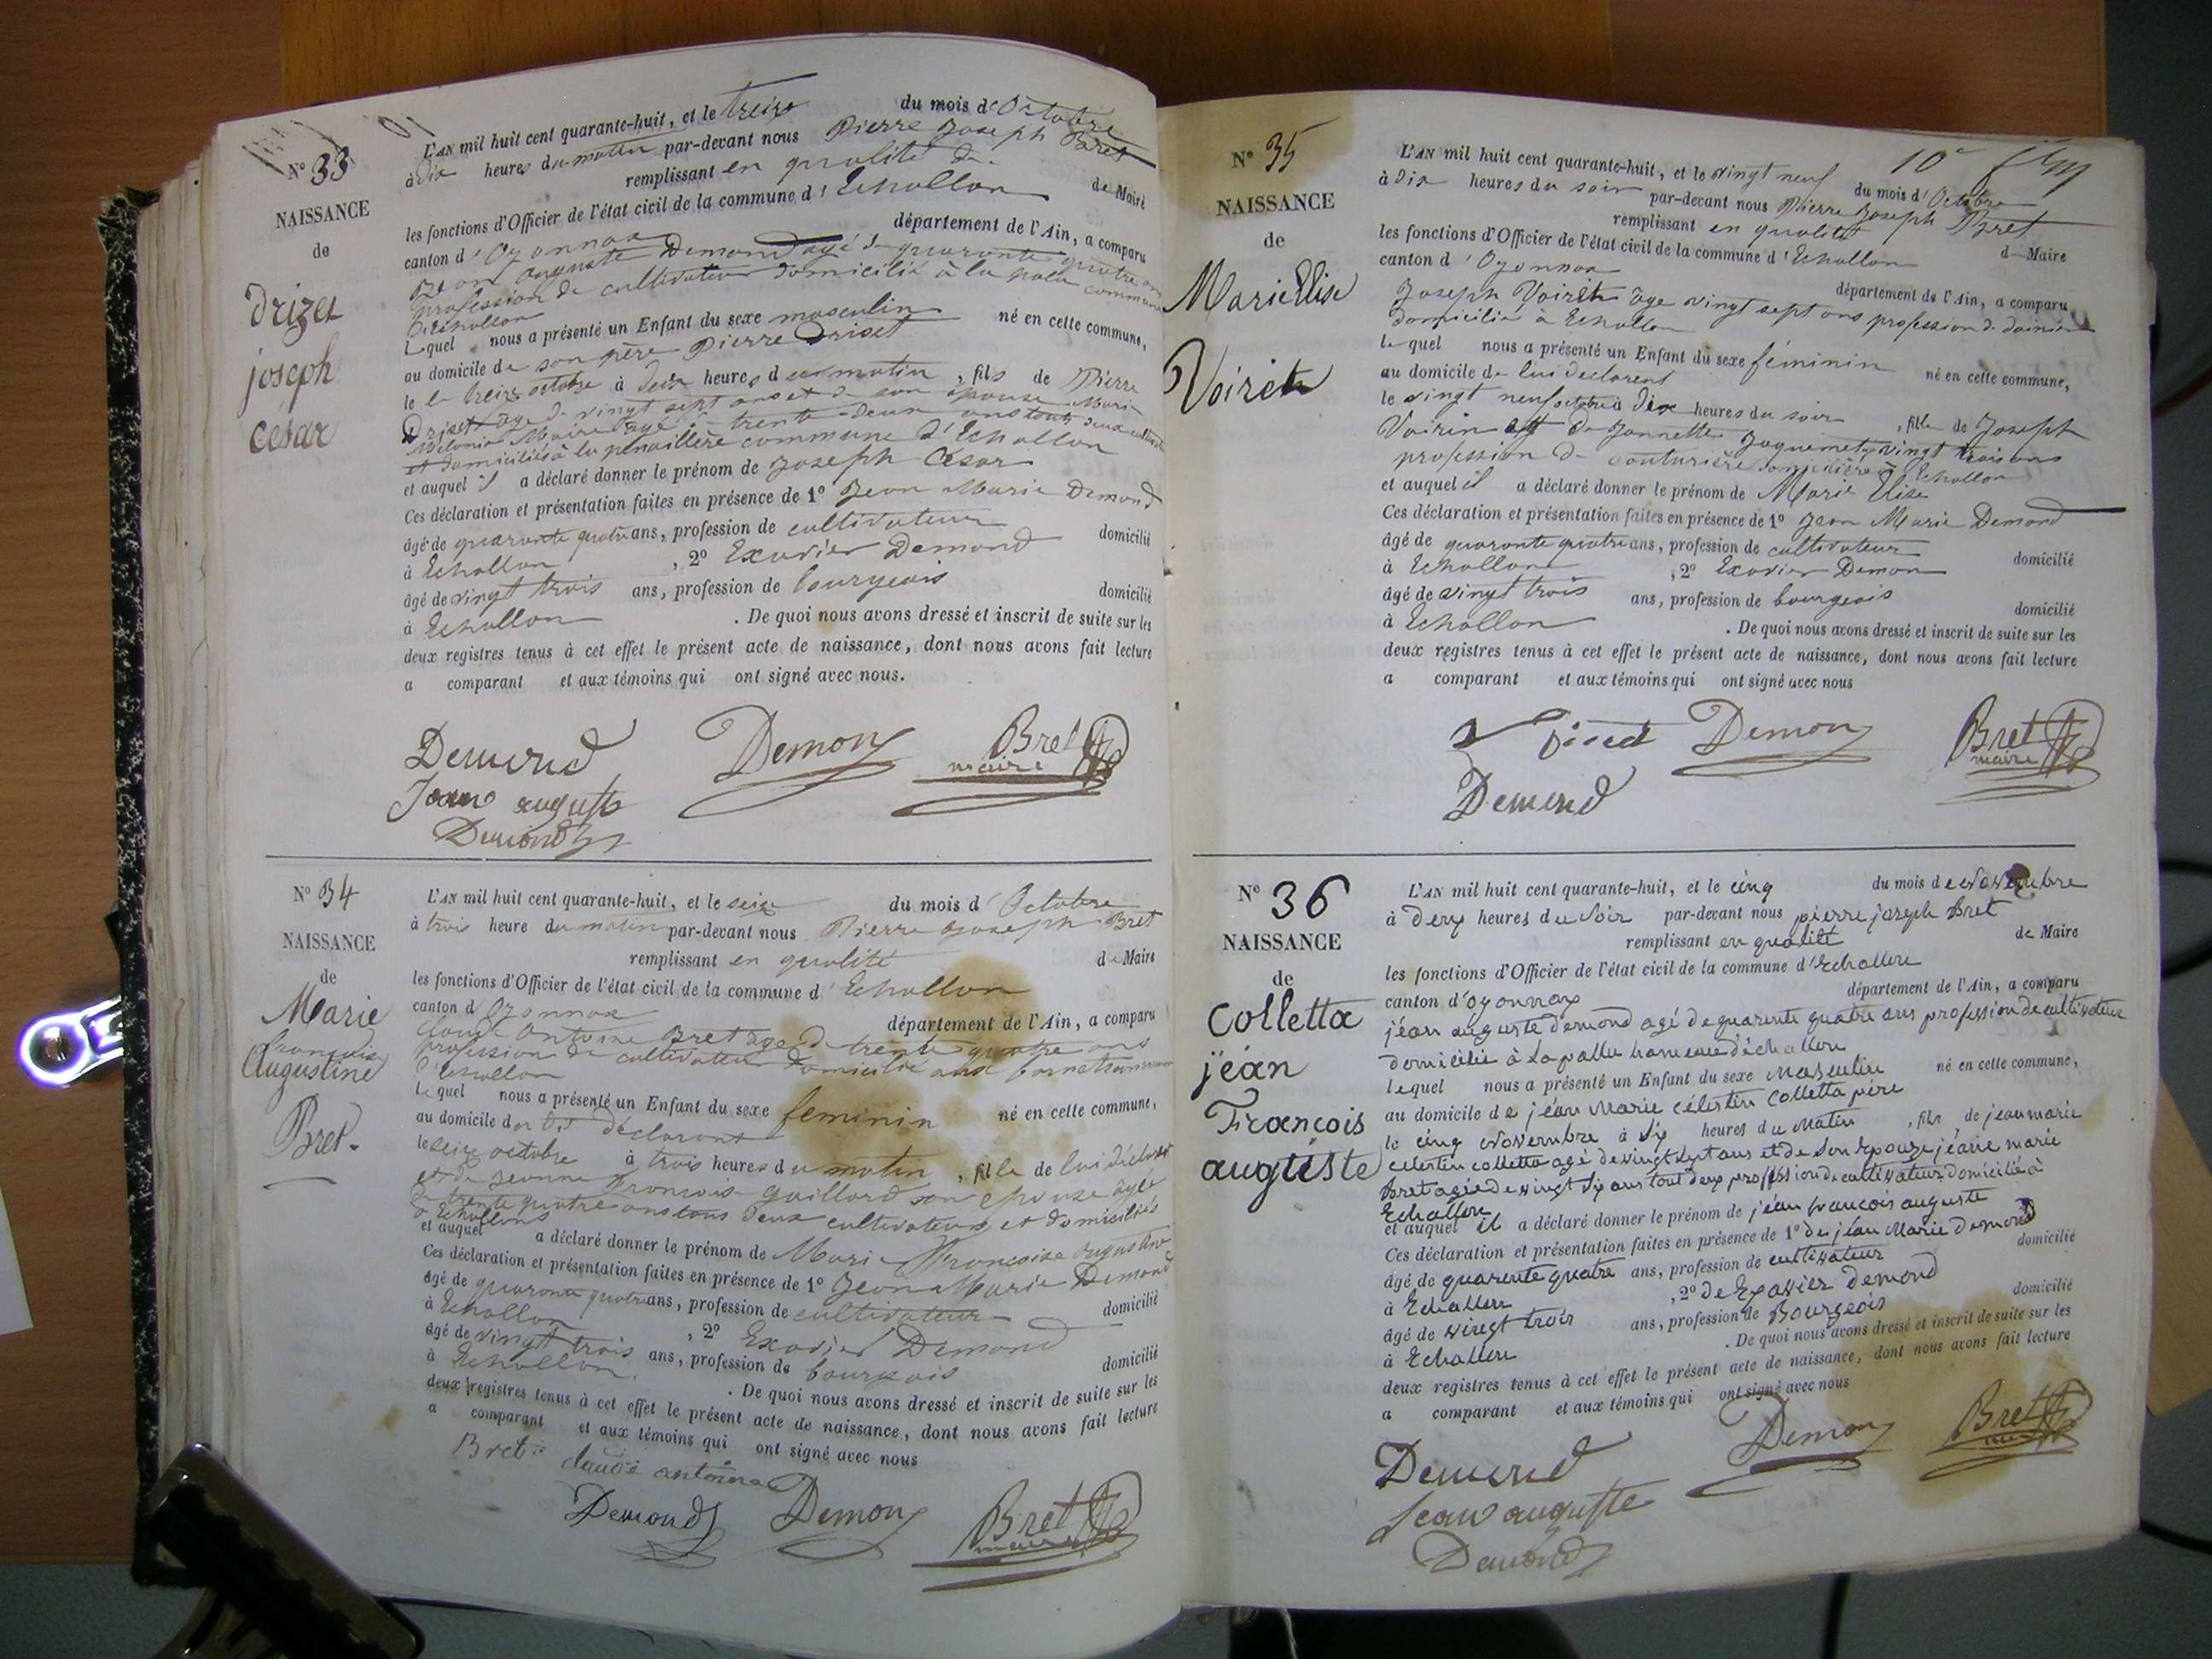 N° 33
NAISSANCE
de
Drizet
joseph
césar
L'AN mil huit cent quarante-huit, et le treize du mois d'Octobre
à dix heures du matin par-devant nous Pierre Joseph Bret
remplissant en qualité de de Maire
les fonctions d'Officier de l'état civil de la commune d'Echallon
canton d'Oyonnax département de l'Ain, a comparu
Jean Auguste Demond agé de quarante quatre ans
profession de cultivateur domicilié à la palu commune
d'Echallon
Lequel nous a présenté un Enfant du sexe masculin né en cette commune,
au domicile de son père Pierre Driset
le le treize octobre à deux heures du matin, fils de Pierre
Driset age de vingt sept ans et de son épouse Marie
Mélanie agé de trente-deux ans tous deux
et domiciliés à la commune d'Echallon
et auquel il a déclaré donner le prénom de Joseph César
Ces déclaration et présentation faites en présence de 1° Jean Marie Demond
âgé de quarante quatre ans, profession de cultivateur domicilié
à Echallon, 2° Exavier Demond
âgé de vingt trois ans, profession de bourgeois domicilié
à Echallon. De quoi nous avons dressé et inscrit de suite sur les
deux registres tenus à cet effet le présent acte de naissance, dont nous avons fait lecture
a comparant et aux témoins qui ont signé avec nous.
Demond Demon Bret
maire
Jean auguste
Demond
N° 34
NAISSANCE
de
Marie
françoise
Augustine
Bret.
L'AN mil huit cent quarante-huit, et le seize du mois d'Octobre
à trois heure du matin par-devant nous Pierre Joseph Bret
remplissant en qualité de Maire
les fonctions d'Officier de l'état civil de la commune d'Echallon
canton d'Oyonnax département de l'Ain, a comparu
Claude Antoine Bret age de trente quatre ans
profession de cultivateur domicilié
d'Echallon
Lequel nous a présenté un Enfant du sexe feminin né en cette commune,
au domicile du dit déclarant
le seize octobre à trois heures du matin, fille de lui déclarant
et de Jeanne François guillard son épouse âgée
de trente quatre ans tous deux cultivateurs et domiciliés
à Echallons
et auquel a déclaré donner le prénom de Marie Françoise Augustine
Ces déclaration et présentation faites en présence de 1° Jean Marie Demond
âgé de quarante quatre ans, profession de cultivateur domicilié
à Echallon, 2° Exavier Demond
âgé de vingt trois ans, profession de bourgeois domicilié
à Echallon. De quoi nous avons dressé et inscrit de suite sur les
deux registres tenus à cet effet le présent acte de naissance, dont nous avons fait lecture
a comparant et aux témoins qui ont signé avec nous
Bret claude antoine
Demond Demon Bret
maire
N° 35
NAISSANCE
de
Marie Elise
Voiret
10e
L'AN mil huit cent quarante-huit, et le vingt neuf du mois d'Octobre
à dix heures du soir par-devant nous Pierre Joseph Bret
remplissant en qualité d Maire
les fonctions d'Officier de l'état civil de la commune d'Echallon
canton d'Oyonnax département de l'Ain, a comparu
Joseph Voiret âge vingt sept ans profession de
domicilié à Echallon
lequel nous a présenté un Enfant du sexe féminin né en cette commune,
au domicile de lui declarent
le vingt neuf octobre à dix heures du soir, fille de Joseph
Voirin et de Jannette Jaquemet vingt trois ans
profession de couturière domicilière à Echallon
et auquel il a déclaré donner le prénom de Marie Elise
Ces déclaration et présentation faites en présence de 1° Jean Marie Demond
âgé de quaronte quatre ans, profession de cultivateur domicilié
à Echallon, 2° Exavier Demon
âgé de vingt trois ans, profession de bourgeois domicilié
à Echallon. De quoi nous avons dressé et inscrit de suite sur les
deux registres tenus à cet effet le présent acte de naissance, dont nous avons fait lecture
a comparant et aux témoins qui ont signé avec nous
Demon Bret
maire
Demond
N° 36
NAISSANCE
de
Colletta
jéan
François
auguste
L'AN mil huit cent quarante-huit, et le cinq du mois de Novembre
à deux heures du soir par-devant nous pierre joseph Bret
remplissant en qualité de Maire
les fonctions d'Officier de l'état civil de la commune d'Echallon
canton d'oyonnax département de l'Ain, a comparu
jéan auguste demond agé de quarente quatre ans profession de cultivateur
domicilié à Lapallu hameau d'échallon
Lequel nous a présenté un Enfant du sexe Masculin né en cette commune,
au domicile de jéan Marie célestin Colletta père
le cinq Novembre à Six heures du Matin, fils de jean marie
celestin colletta agé de vingt sept ans et de Son Epouze jéane marie
Bret agée de vingt Six ans tout deux profession de cultivateur domicilié à
Echallon
et auquel il a déclaré donner le prénom de jéan francois auguste
Ces déclaration et présentation faites en présence de 1° de jéan Marie demond
âgé de quarente quatre ans, profession de cultivateur domicilié
à Echallon, 2° de Exavier demond
âgé de vingt trois ans, profession de Bourgeois domicilié
à Echallon. De quoi nous avons dressé et inscrit de suite sur les
deux registres tenus à cet effet le présent acte de naissance, dont nous avons fait lecture
a comparant et aux témoins qui ont signé avec nous
Demond Demon Bret
Jean auguste
Demond